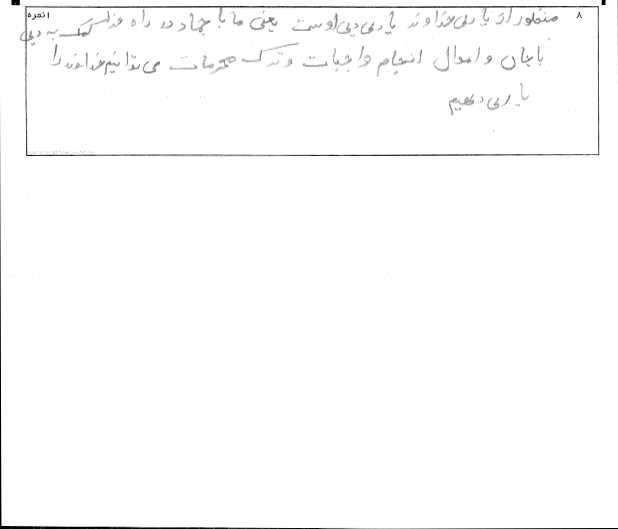 ۸
۱نمره
منظور از یاری خداوند یاری دین اوست یعنی ما با جهاد در راه خدا کمک به دین
با جان و اموال انجام واجبات و ترک محرمات می توانیم خداوند را
یاری دهیم